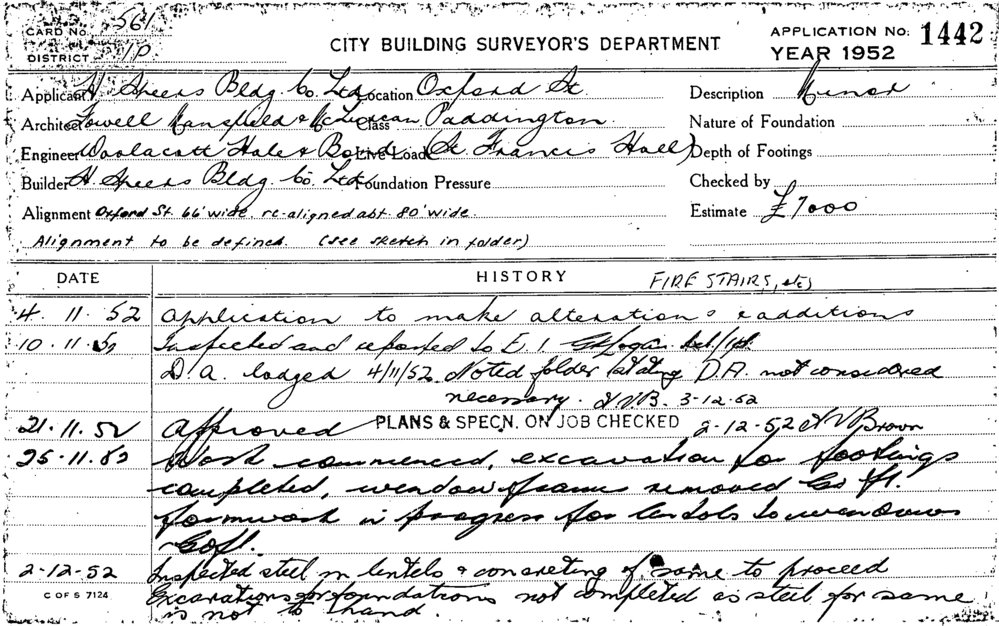 CARD No. 561
DISTRICT 1P
CITY BUILDING SURVEYOR'S DEPARTMENT
APPLICATION No: 1442
YEAR 1952
Applicant H. Speers Bldg. Co. Ltd. Location Oxford St. Description Minor
Architect Fowell Mansfield & McLurcan Class Paddington. Nature of Foundation
Engineer Woolacott Hale & Bond Live Load (St. Francis Hall) Depth of Footings
Builder H. Speers Bldg. Co. Ltd. Foundation Pressure Checked by
Alignment Oxford St. 66' wide. re-aligned abt. 80' wide. Estimate £7000
Alignment to be defined. (see sketch in folder)
DATE HISTORY FIRE STAIRS, etc
4. 11. 52 Application to make alterations & additions
10. 11. 52 Inspected and reported to E. I.
D. A. lodged 4/11/52. Noted folder stating D.A. not considered
necessary. 3-12-52
21. 11. 52 Approved PLANS & SPECN. ON JOB CHECKED 2-12-52 Brown
25-11-52 Work commenced, excavation for footings
completed, window frame removed
formwork in progress for lentols to windows
2-12-52 Inspected steel in lentels & concreting of same to proceed
C OF S 7124 Excavations for foundations not completed as steel for same
is not to hand.